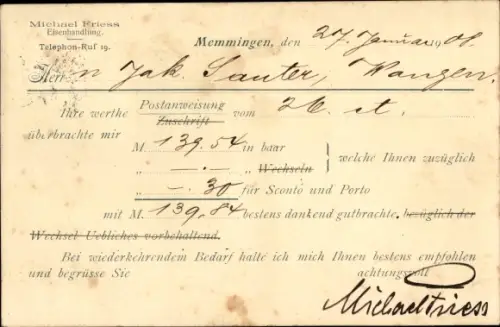 Michael Friess
Eisenhandlung.
Telephon-Ruf 19.
Memmingen, den 27. Januar 1901.
Herrn Jak. Sauter, Wangen.
Postanweisung
Ihre werthe Zuschrift vom 26. ct.
überbrachte mir
M. 139.54 in baar
„ —.— „ Wechseln } welche Ihnen zuzüglich
„ —.30 für Sconto und Porto
mit M. 139.84 bestens dankend gutbrachte, bezüglich der
Wechsel Uebliches vorbehaltend.
Bei wiederkehrendem Bedarf halte ich mich Ihnen bestens empfohlen
und begrüsse Sie achtungsvoll
Michael Friess